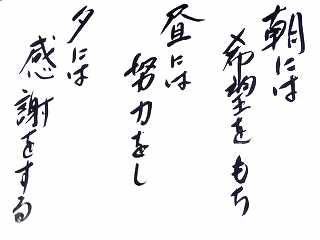 朝には
希望をもち
昼には
努力をし
夕には
感謝をする